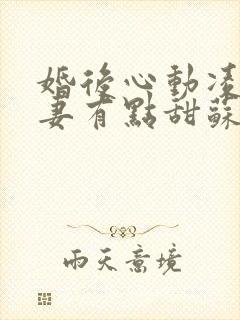 婚後心動凌
妻有點甜蘇
雨天意境